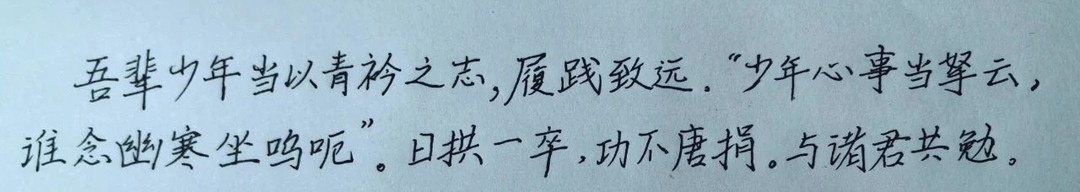 吾辈少年当以青衿之志,履践致远.“少年心事当拏云,
谁念幽寒坐呜呃”。日拱一卒,功不唐捐。与诸君共勉。